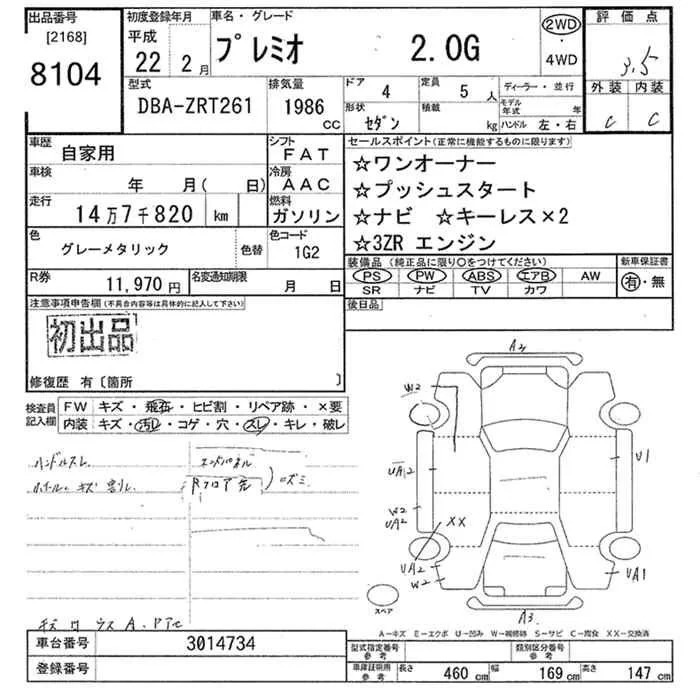 出品番号
[2168]
8104
初度登録年月
平成
22年 2月
車名・グレード
プレミオ 2.0G
2WD
・
4WD
評価点
3.5
外装 内装
C C
型式
DBA-ZRT261
排気量
1986
CC
ドア 4
定員 5 人
形状 セダン
積載 kg
ディーラー・並行
モデル年式 年
ハンドル 左・右
車歴 自家用
シフト FAT
車検 年 月( 日)
冷房 AAC
走行 14万7千820 km
燃料 ガソリン
色 グレーメタリック 色替
色コード 1G2
R券 11,970 円
名変通知期限 月 日
セールスポイント(正常に機能するものに限ります)
☆ワンオーナー
☆プッシュスタート
☆ナビ ☆キーレス×2
☆3ZR エンジン
装備品 (純正品に限り○をつけてください)
PS PW ABS エアB AW
SR ナビ TV カワ
新車保証書
有・無
後日品
注意事項申告欄(不具合内容等は具体的に記入して下さい)
初出品
修復歴 有〔箇所 〕
検査員記入欄
FW キズ・飛石・ヒビ割・リペア跡・×要
内装 キズ・汚れ・コゲ・穴・スレ・キレ・破レ
ハンドルスレ
エンドパネル
Rフロア先
A2
W2
UA2
U1
W2
UA2
XX
UA2
W2
UA1
A3
スペア
A-キズ E-エクボ U-凹み W-補修跡 S-サビ C-腐食 XX-交換済
車台番号 3014734
登録番号
型式指定番号 参考
類別区分番号 参考
車庫証明用 参考
長さ 460 cm 幅 169 cm 高さ 147 cm